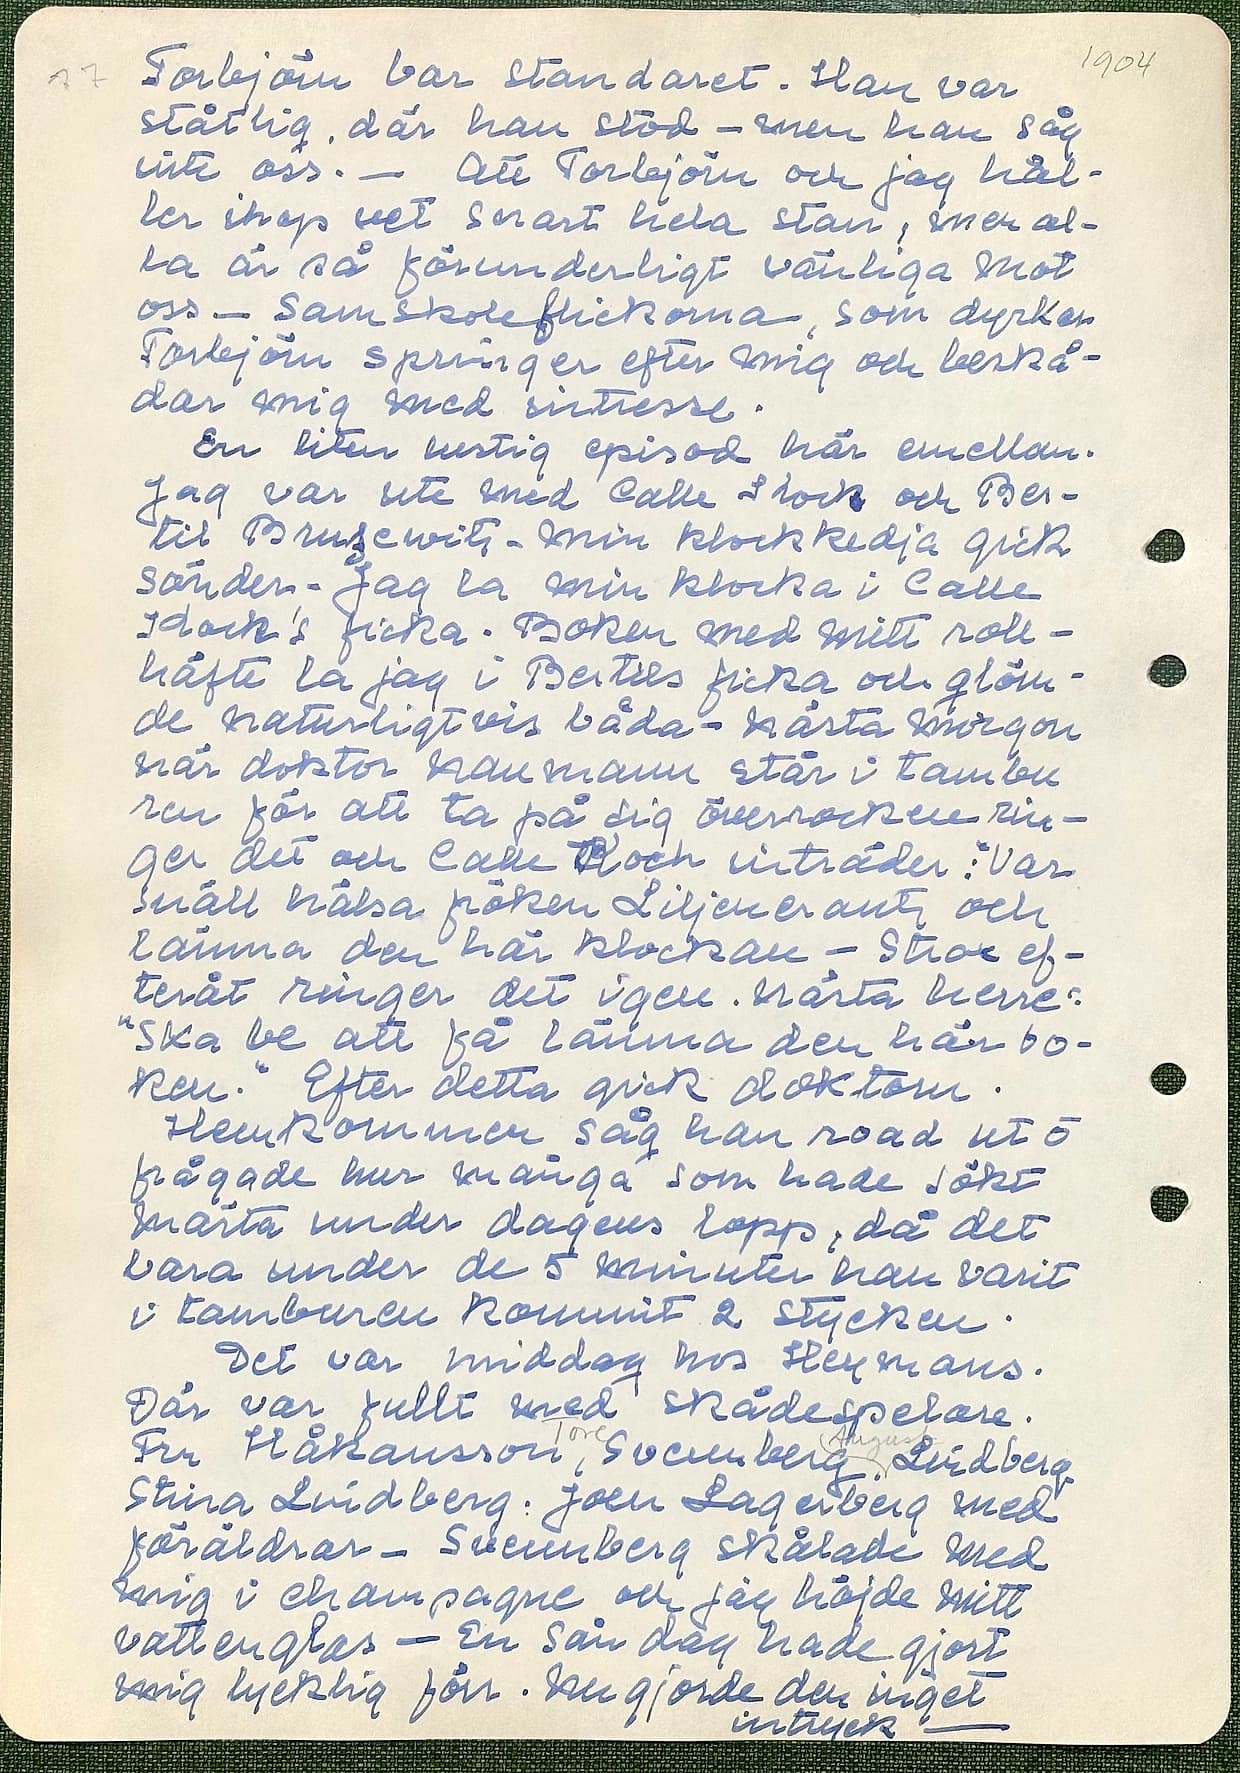 17
1904
Torbjörn bar standaret. Han var
ståtlig, där han stod – men han såg
inte oss. — Att Torbjörn och jag hål-
ler ihop vet snart hela stan, men al-
la är så förunderligt vänliga mot
oss — Samskoleflickorna, som dyrkar
Torbjörn springer efter mig och beskå-
dar mig med intresse.
En liten lustig episod här emellan.
Jag var ute med Calle och Ber-
til Bruzewitz – min klockkedja gick
sönder – Jag la min klocka i Calle
ficka. Boken med mitt roll-
häfte la jag i Bertils ficka och glöm-
de naturligtvis båda – nästa morgon
när doktor Naumann står i tambu
ren för att ta på sig överrocken rin-
ger det och Calle inträder: "Var
snäll hälsa fröken Liljencrantz och
lämna den här klockan – Strax ef-
teråt ringer det igen. Nästa herre:
"Ska be att få lämna den här bo-
ken." Efter detta gick doktorn.
Hemkommen såg han road ut o
frågade hur många som hade sökt
Märta under dagens lopp, då det
bara under de 5 minuter han varit
i tamburen kommit 2 stycken.
Det var middag hos Heymans.
Där var fullt med skådespelare.
Tore
August
Fru Håkansson, Svennberg, Lindberg,
Stina Lindberg: Joen Lagerberg med
föräldrar – Svennberg skålade med
mig i champagne och jag höjde mitt
vattenglas — En sån dag hade gjort
mig lycklig förr. Nu gjorde den inget
intryck —